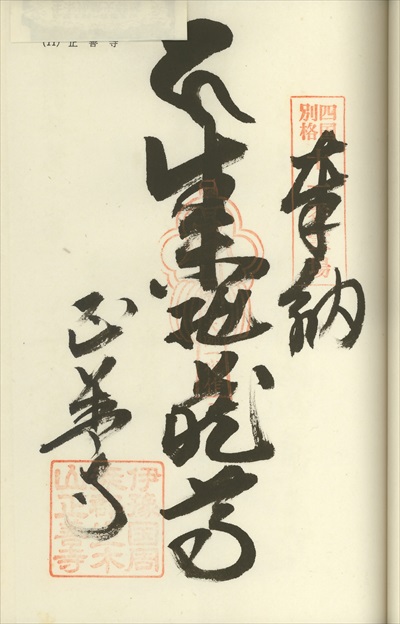 (11) 正善寺
四国
別格
奉納
生木地蔵尊
正善寺
伊豫国周
山正善寺